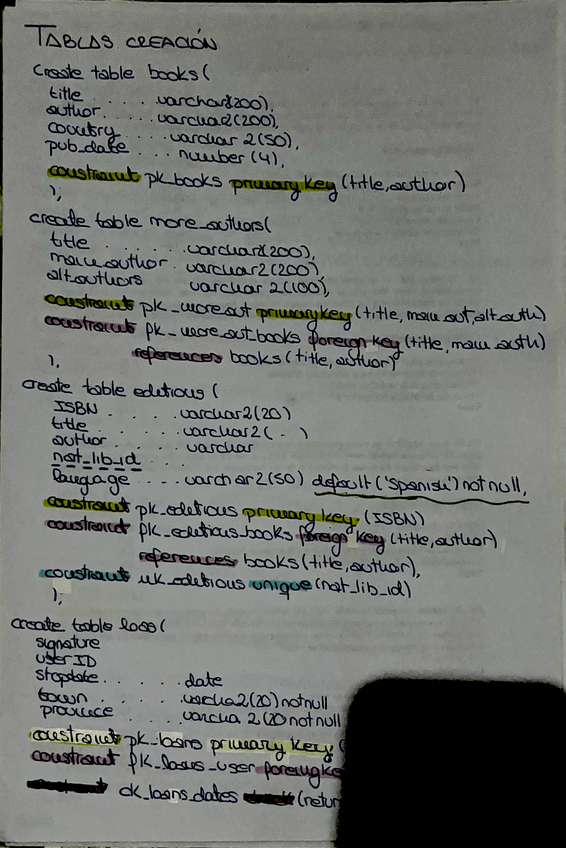 TABLAS CREACIÓN
create table books(
title . . . . varchar2(200),
author . . . . varchar2(200),
country . . . varchar 2(50),
pub_date . . . number (4),
constraint pk_books primary key (title, author)
);
create table more_authors(
title . . . . . varchar2(200),
main_author . varchar2(200),
alt_authors varchar 2(100),
constraint pk_more_aut primary key (title, main_aut, alt_auth)
constraint fk_more_aut_books foreign key (title, main_auth)
references books (title, author)
);
create table editions (
ISBN . . . . varchar2(20)
title . . . . varchar2( - )
author . . . . varchar
nat_lib_id . . .
language . . . varchar2(50) default ('Spanish') not null,
constraint pk_editions primary key (ISBN)
constraint fk_editions_books foreign key (title, author)
references books (title, author),
constraint uk_editions unique (nat_lib_id)
);
create table loss(
signature
user ID
stopdate . . . . . date
town . . . . . varcha2(20) not null
province . . . varcha 2(20 not null
constraint pk_loans primary key (
constraint fk_loans_user foreign ke
ck_loans_dates (retur